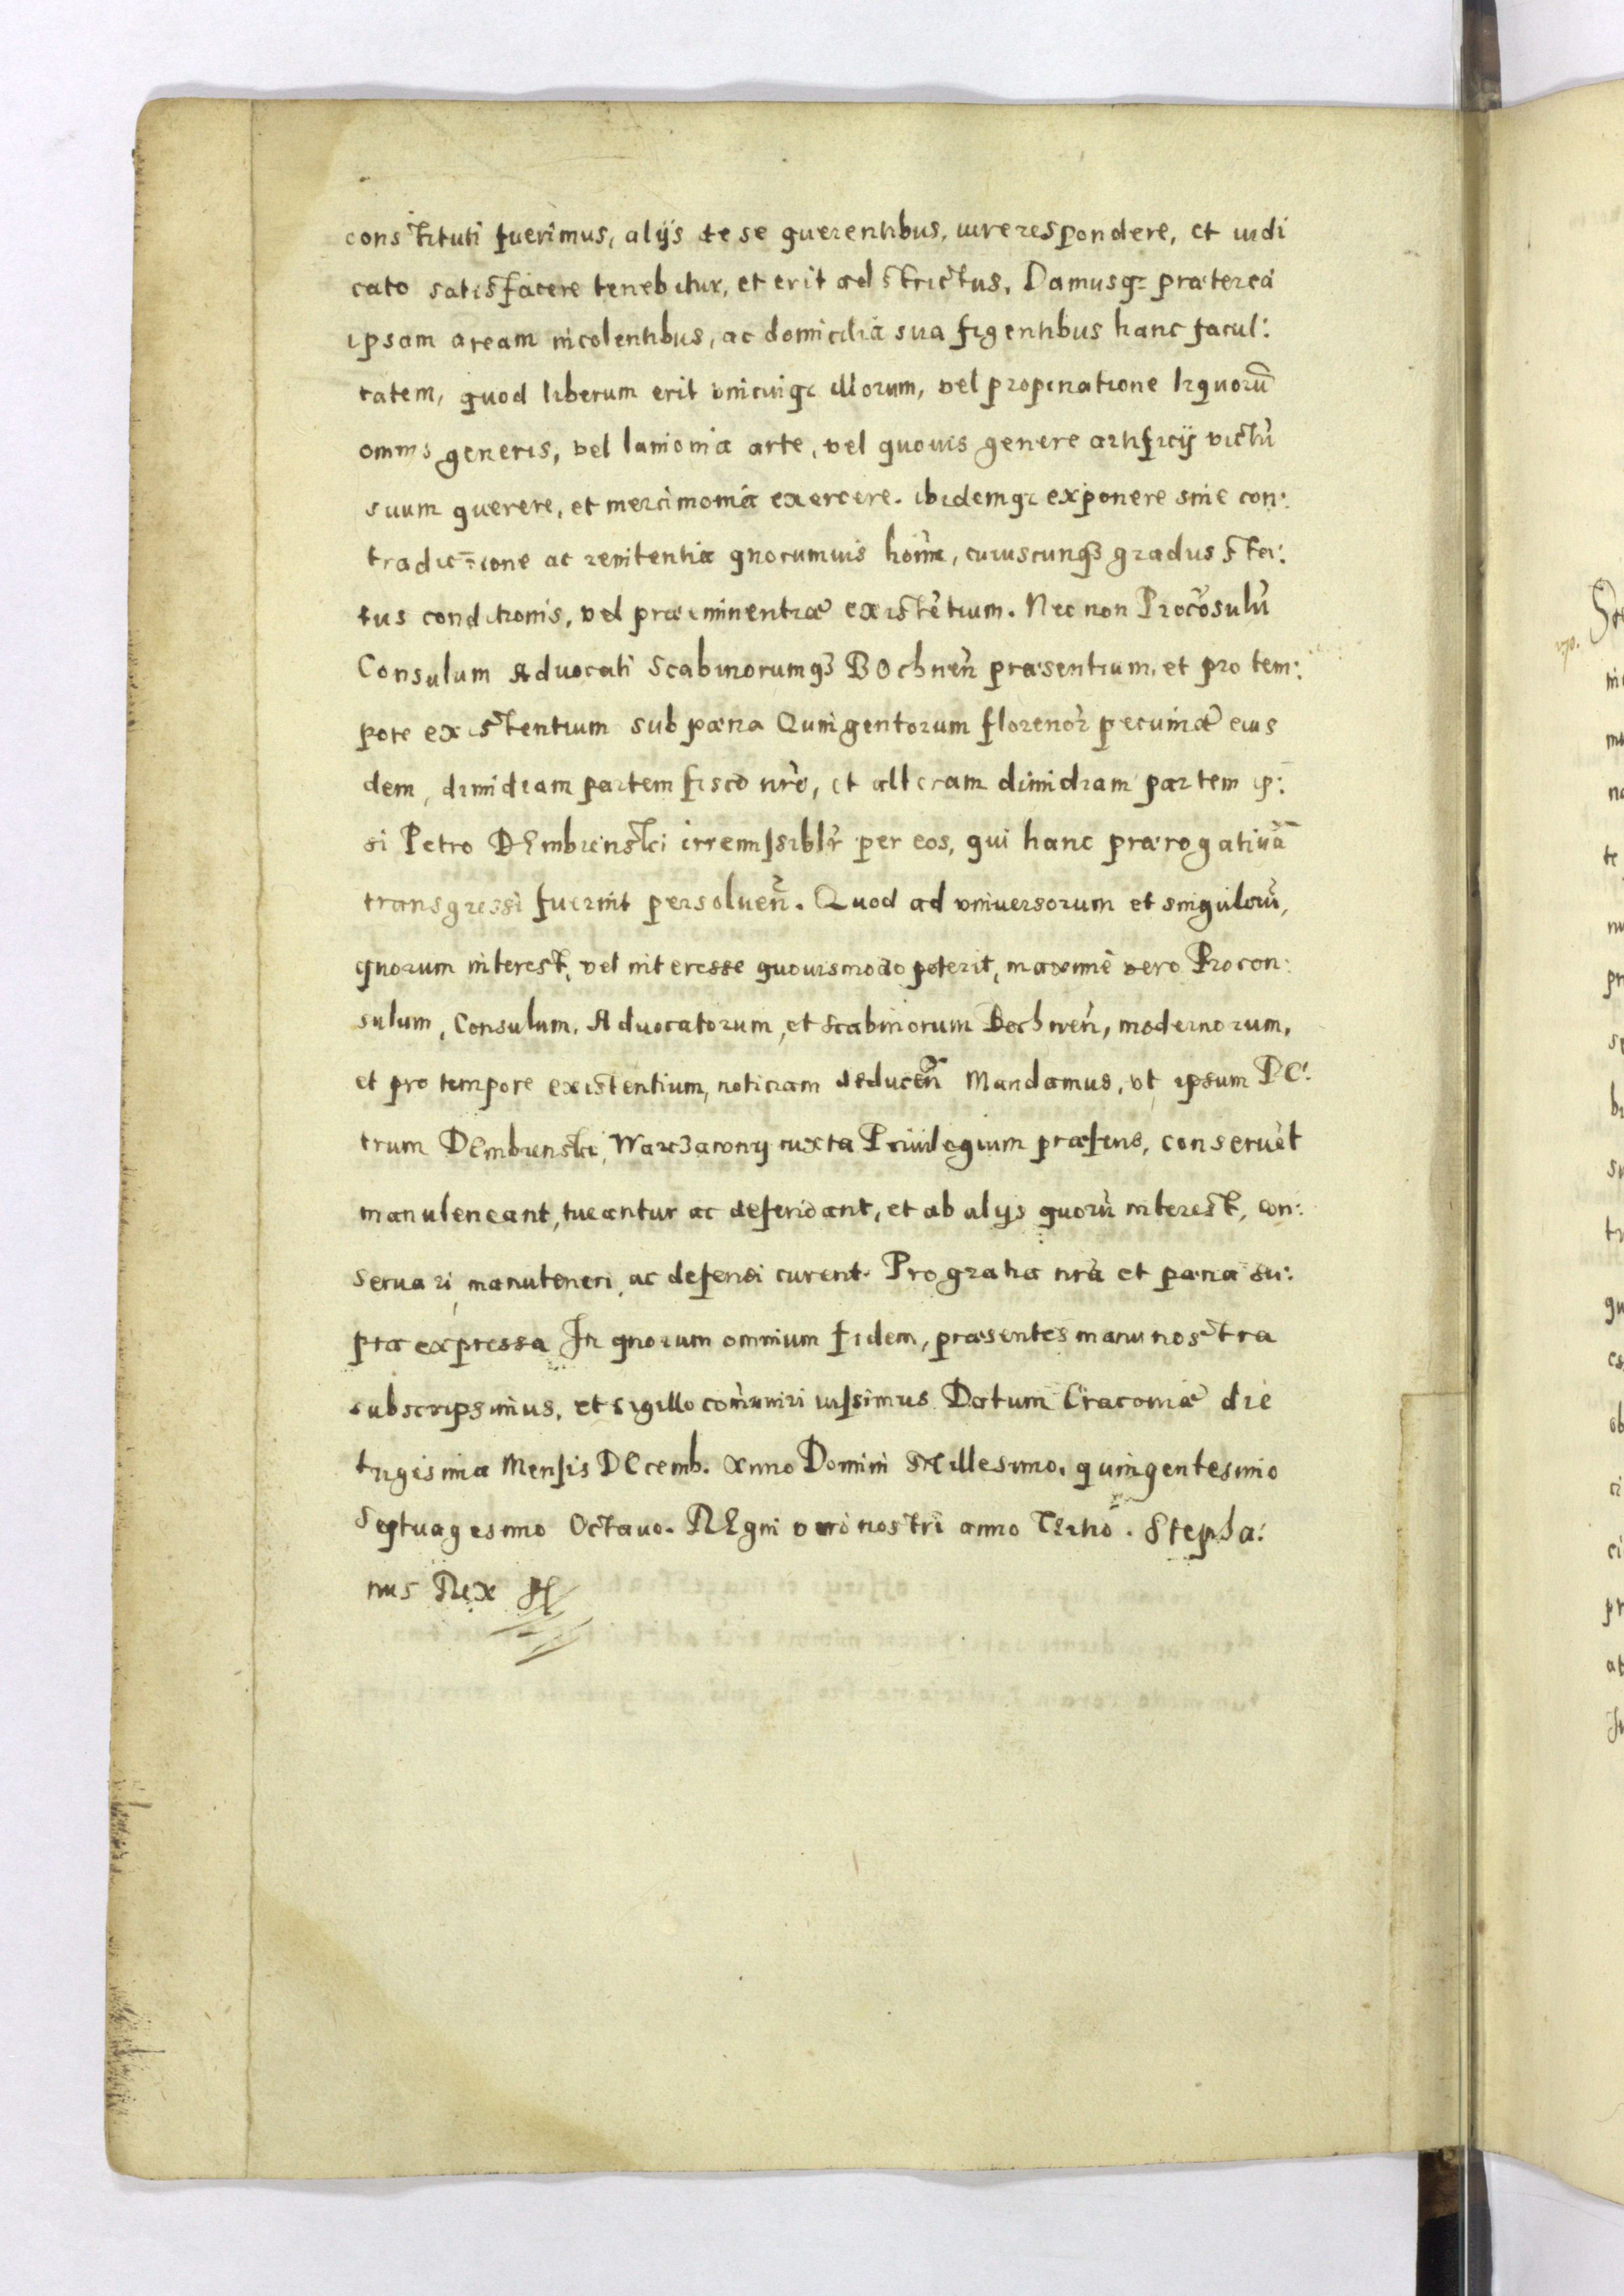 constituti fuerimus, alijs de se querentibus, iure respondere, et iudi
cato satisfacere tenebitur, et erit adstrictus. Damusq; præterea
ipsam aream incolentibus, ac domicilia sua figentibus hanc facul:
tatem, quod liberum erit vnicuiq; illorum, vel propinatione liquorū
omnis generis, vel lanionia arte, vel quouis genere artificij victū
suum querere, et mercimonia exercere. ibidemq; exponere sine con:
tradictione ac renitentia quorumuis hoīm, cuiuscunq3 gradus sta:
tus conditionis, vel præeminentiæ existētium. Nec non Procōsulū
Consulum Aduocati Scabinorumq3 BOchneñ præsentium, et pro tem:
pore existentium sub pæna Quingentorum florenor pecuniæ eius
dem, dimidiam partem fisco nr̄o, et alteram dimidiam partem ip:
si Petro DEmbienski irremissiblr̄ per eos, qui hanc prærogatiuā
transgressi fuerint persolueñ. Quod ad vniuersorum et singulorū,
quorum interest, vel interesse quouismodo poterit, maxime vero Procon:
sulum, Consulum, Aduocatorum, et Scabinorum Bochneñ, modernorum,
et pro tempore existentium, noticiam deduceñ Mandamus, vt ipsum PE:
trum DEmbienski, Warczarony iuxta Priuilegium præsens, conseruēt
manuteneant, tueantur ac defendant, et ab alijs quorū interest, con:
seruari, manuteneri, ac defendi curent. Pro gratia nrā et pæna su:
pra expressa In quorum omnium fidem, præsentes manu nostra
subscripsimus, et sigillo com̄uniri iussimus Datum Cracouiæ die
trigesima Mensis DEcemb. Anno Domini Millesimo, quingentesimo
Septuagesimo Octauo. REgni vero nostri anno TErtio. Stepha:
nus Rex